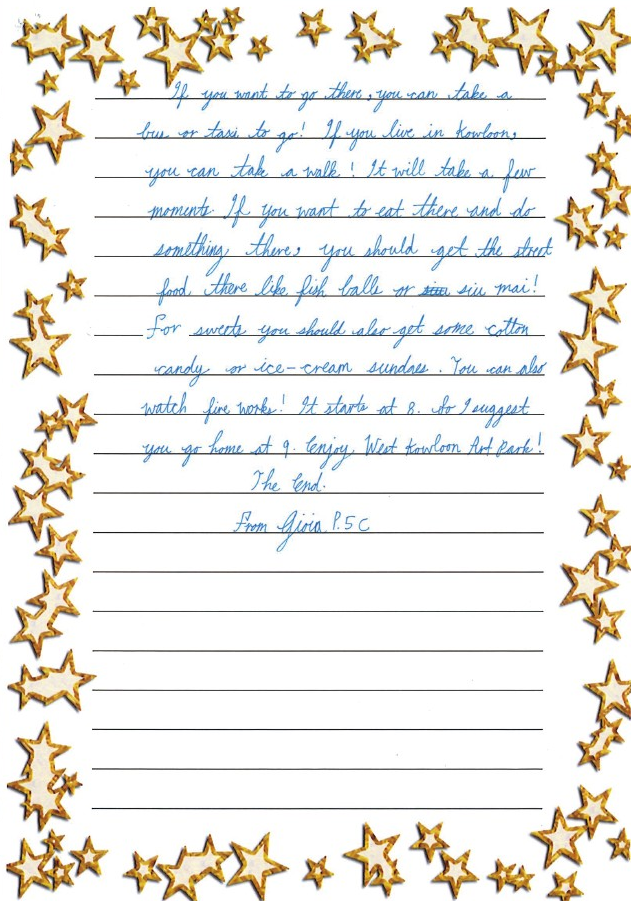 If you want to go there, you can take a
bus or taxi to go! If you live in Kowloon,
you can take a walk! It will take a few
moments. If you want to eat there and do
something there, you should get the street
food there like fish balls or siu mai!
For sweets you should also get some cotton
candy or ice-cream sundaes. You can also
watch fire works! It starts at 8. So I suggest
you go home at 9. Enjoy West Kowloon Art Park!
The End.
From Gioia P.5C